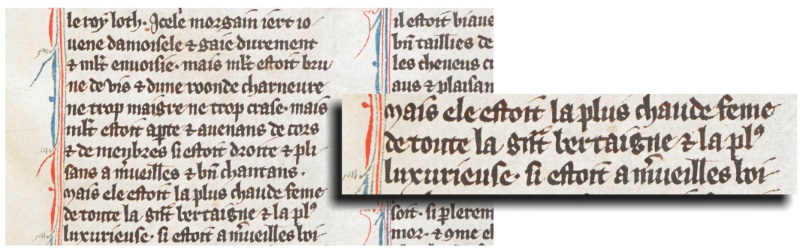 le roy loth. Icele morgain iert io
uene damoisele & gaie durement
& ml̃t enuoisie. mais ml̃t estoit bru
ne de vis & dune roonde charneure
ne trop maigre ne trop crase. mais
ml̃t estoit apte & auenans de cors
& de meb̃res si estoit droite & pli
sans a m̃ueilles & bñ chantans.
mais ele estoit la plus chaude feme
de toute la g̃nt bertaigne & la pl⁹
luxurieuse. si estoit a m̃ueilles boi
il estoit biaus
bñ taillies de
les cheueus c
aus & plaisan
mais ele estoit la plus chaude feme
de toute la g̃nt bertaigne & la pl⁹
luxurieuse. si estoit a m̃ueilles boi
soit. si plerem
mor. & 9me el